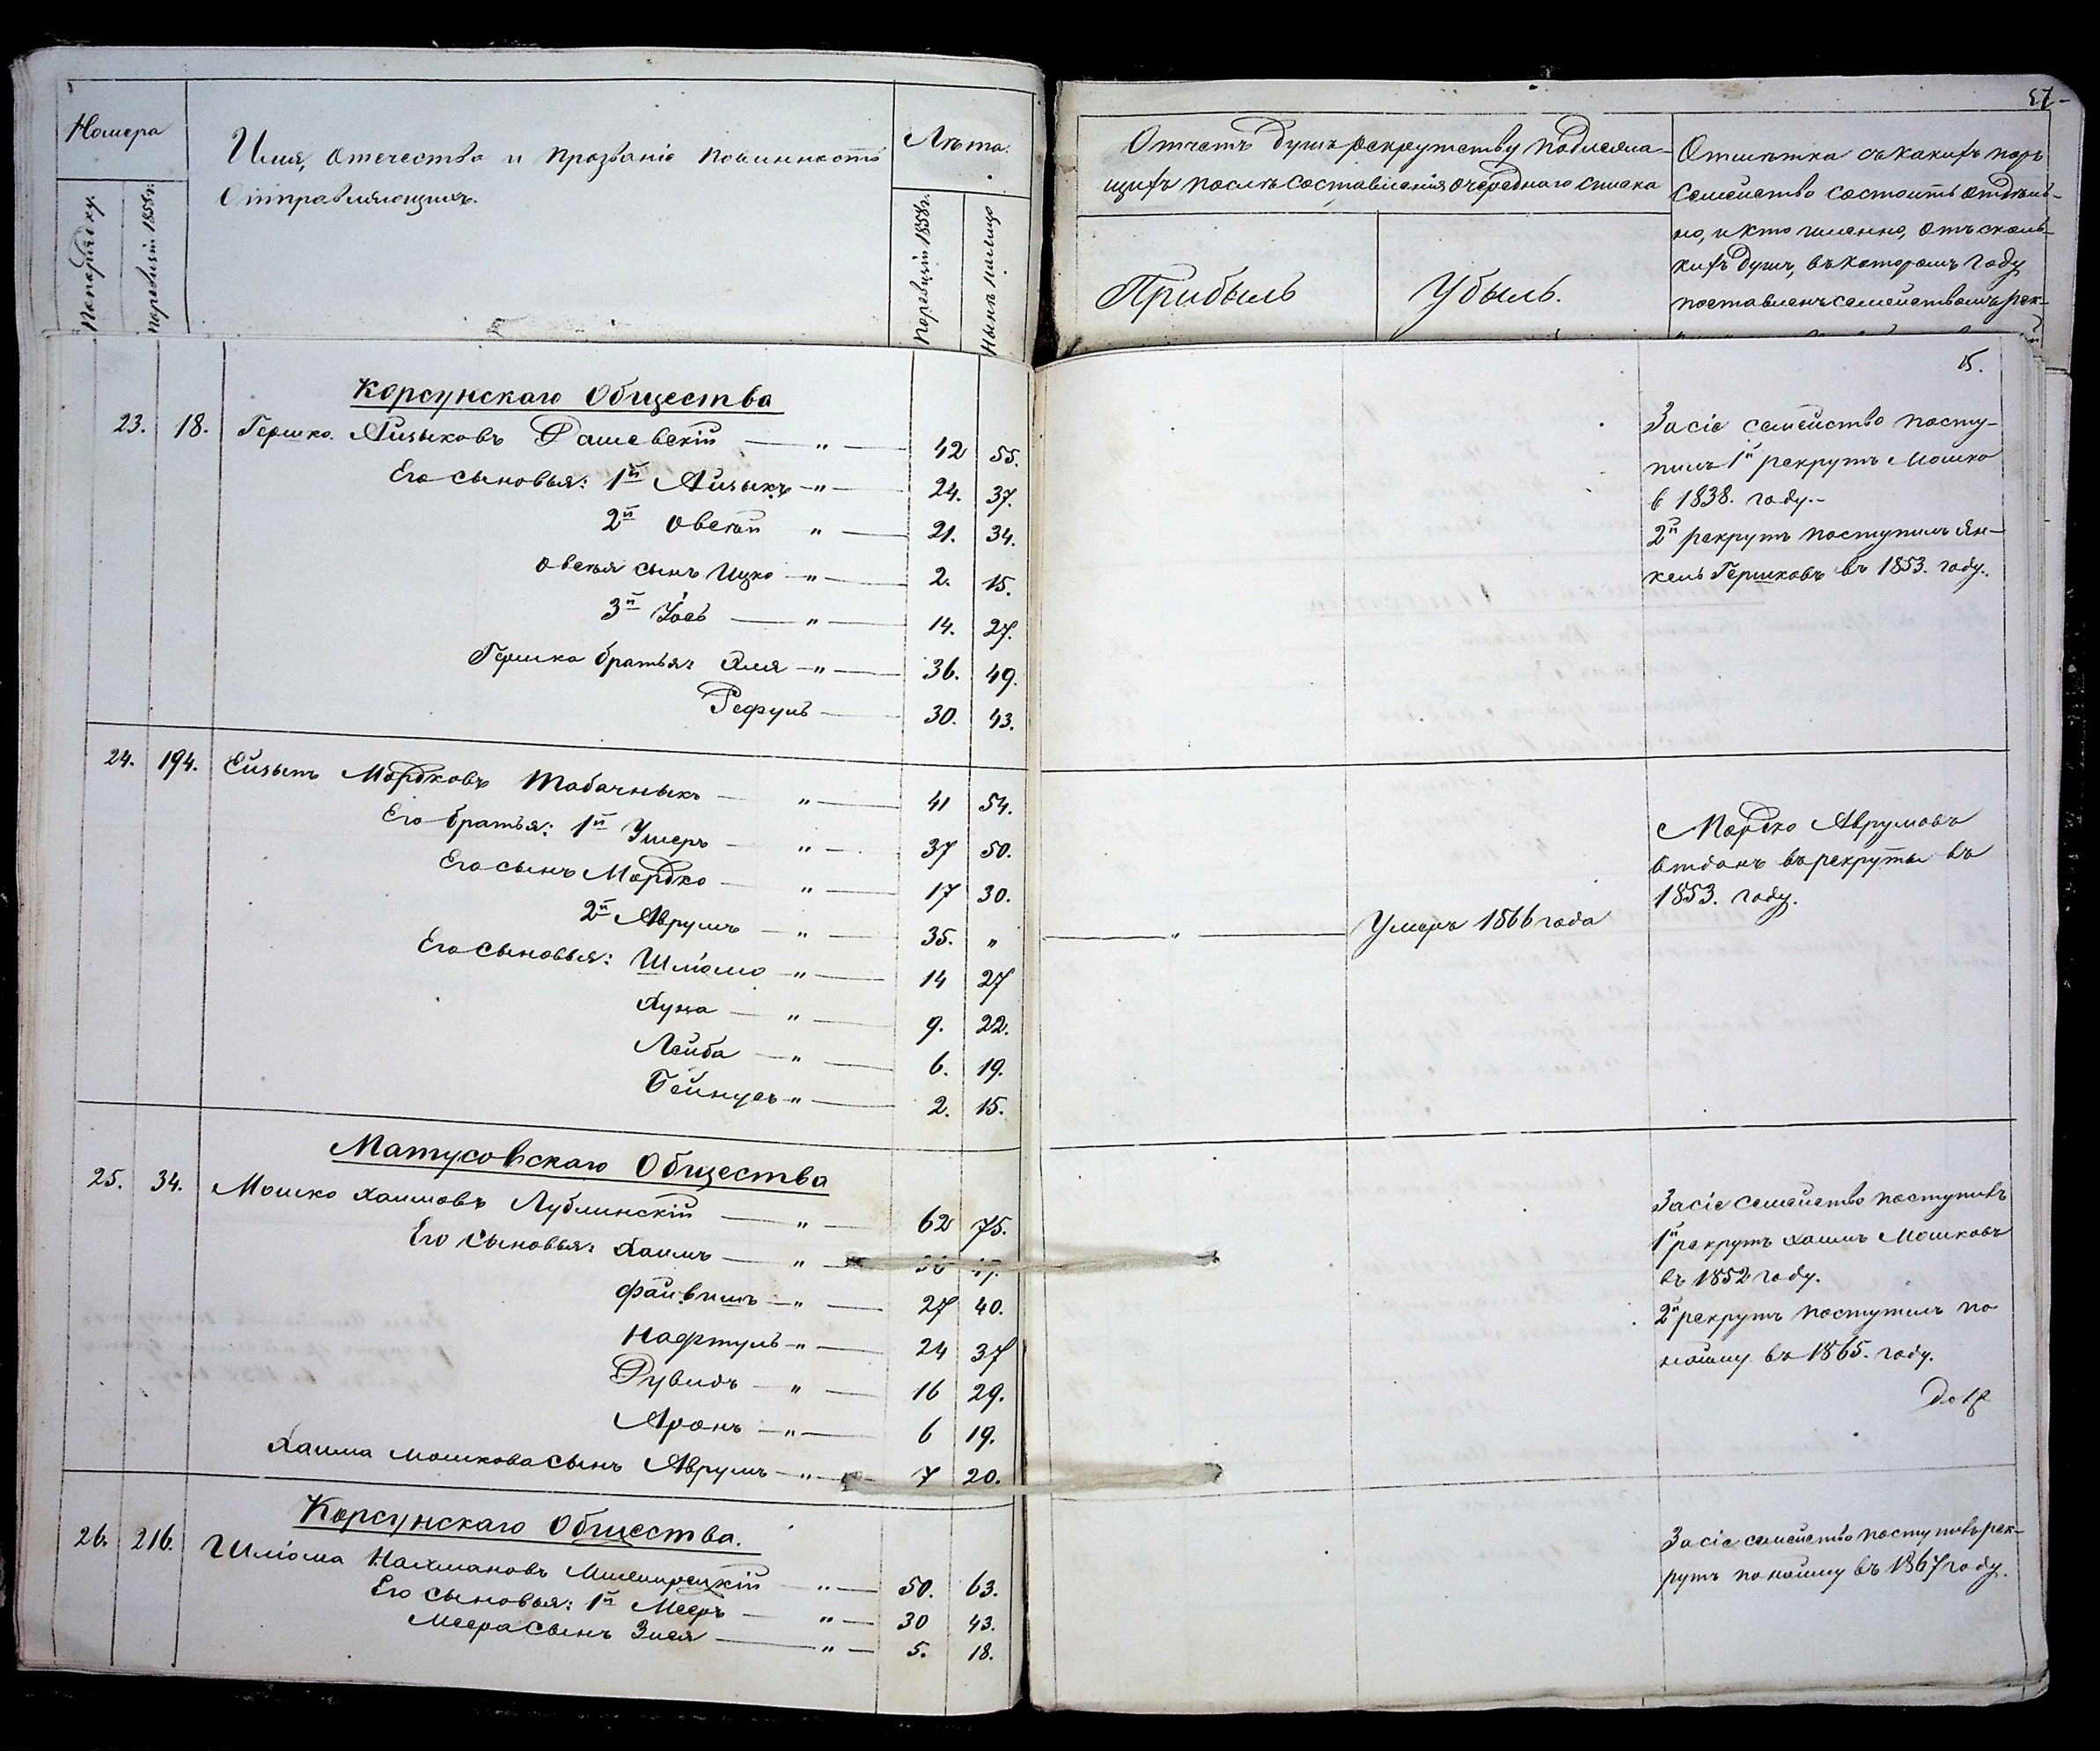 57
Номера
По порядку.
По ревизіи 1858 г.
Имя, отечество и прозваніе повинность
отправляющихъ.
Лѣта.
По ревизіи 1858 г.
Нынѣ налицо
Отчетъ душъ рекрутству подлежа-
щихъ послѣ составленія очереднаго списка
Прибыль
Убыль.
Отмѣтка съ какихъ поръ
семейство состоитъ отдѣль-
но, и кто именно, отъ сколь-
кихъ душъ, въ которомъ году
поставленъ семействомъ рек-
15.
Корсунскаго Общества
23. 18. Гершко Айзыковъ Рашевскій — " — 42 55.
Его сыновья: 1й Айзыкъ — " — 24. 37.
2й Овсѣй " — 21. 34.
Овсѣя сынъ Ицко — " — 2. 15.
3й Іось — " — 14. 27.
Гершка братья: Эля — " — 36. 49.
Рефулъ — 30. 43.
За сіе семейство посту-
пилъ 1й рекрутъ Мошко
в 1838. году.-
2й рекрутъ поступилъ Ян-
кель Гершковъ въ 1853. году.
24. 194. Мордковъ Табачныкъ — " — 41 54.
Его братья: 1й Ушеръ — " — 37 50.
Его сынъ Мордко — " — 17 30.
2й Аврумъ — " — 35. "
Его сыновья: Шліомо — " — 14 27
Хуна — " — 9. 22.
Лейба — " — 6. 19.
Бейнусъ — " — 2. 15.
— " — Умеръ 1866 года
Мордко Аврумовъ
отданъ въ рекруты въ
1853. году.
Матусовскаго Общества
25. 34. Мошко Хаимовъ Лублинскій — " — 62 75.
Его сыновья: Хаимъ — " —
Файвишъ — " — 27 40.
Нафтулъ — " — 24 37
Рувидъ — " — 16 29.
Аронъ — " — 6 19.
Хаима Мошкова сынъ Аврумъ — " — 7 20.
За сіе семейство поступилъ
1й рекрутъ Хаимъ Мошковъ
въ 1852 году.
2й рекрутъ поступилъ по
найму въ 1865. году.
Корсунскаго Общества.
26. 216. Шліома Нахмановъ — " — 50. 63.
Его сыновья: 1й Мееръ — " — 30 43.
Меера сынъ Зися — " — 5. 18.
За сіе семейство поступилъ рек-
рутъ по найму въ 1867 году.